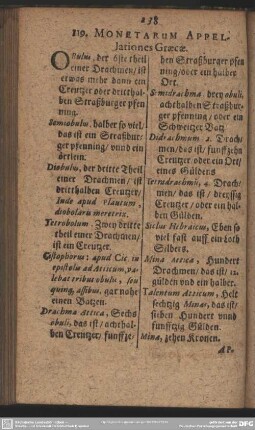 238
119. MONETARUM APPEL-
lationes Græcæ.
Obulus, der 6ste theil
einer Drachmen/ ist
etwas mehr dann ein
Creutzer oder dritthal-
ben Straßburger pfen
ning.
Semiobulus, halber so viel/
das ist ein Straßbur-
ger pfenning/ vnnd ein
örtlein.
Diobulus, der dritte Theil
einer Drachmen/ ist
dritthalben Creutzer/
Inde apud Plautum,
diobolaris meretrix.
Tetrobolum, Zwey dritte
theil einer Drachmen/
ist ein Creutzer.
Cistophorus, apud Cic. in
epistola ad Atticum, va-
lebat tribus obulis, seu
quinq; assibus, gar nahe
einen Batzen.
Drachma Attica, Sechs
obuli, das ist/ achthal-
ben Creutzer/ funffze-
hen Straßburger pfen
ning/ oder ein halber
Ort.
Semidrachma, drey obuli,
achthalben Straßbur-
ger pfenning/ oder ein
Schweitzer Batz
Didrachmum 2. Drach-
men/ das ist/ funffzehn
Creutzer oder ein Ort/
eines Güldens
Tetradrachmũ, 4. Drach-
men/ das ist/ dreyssig
Creutzer/ oder ein hal-
ben Gülden.
Siclus Hebraicus, Eben so
viel fast auff ein loth
Silbers.
Mina Attica, Hundert
Drachmen/ das ist/ 12.
gülden vnd ein halber.
Talentum Atticum, Helt
sechtzig Minas, das ist/
sieben Hundert vnnd
funfftzig Gülden.
Mina, zehen Kronen.
AP-